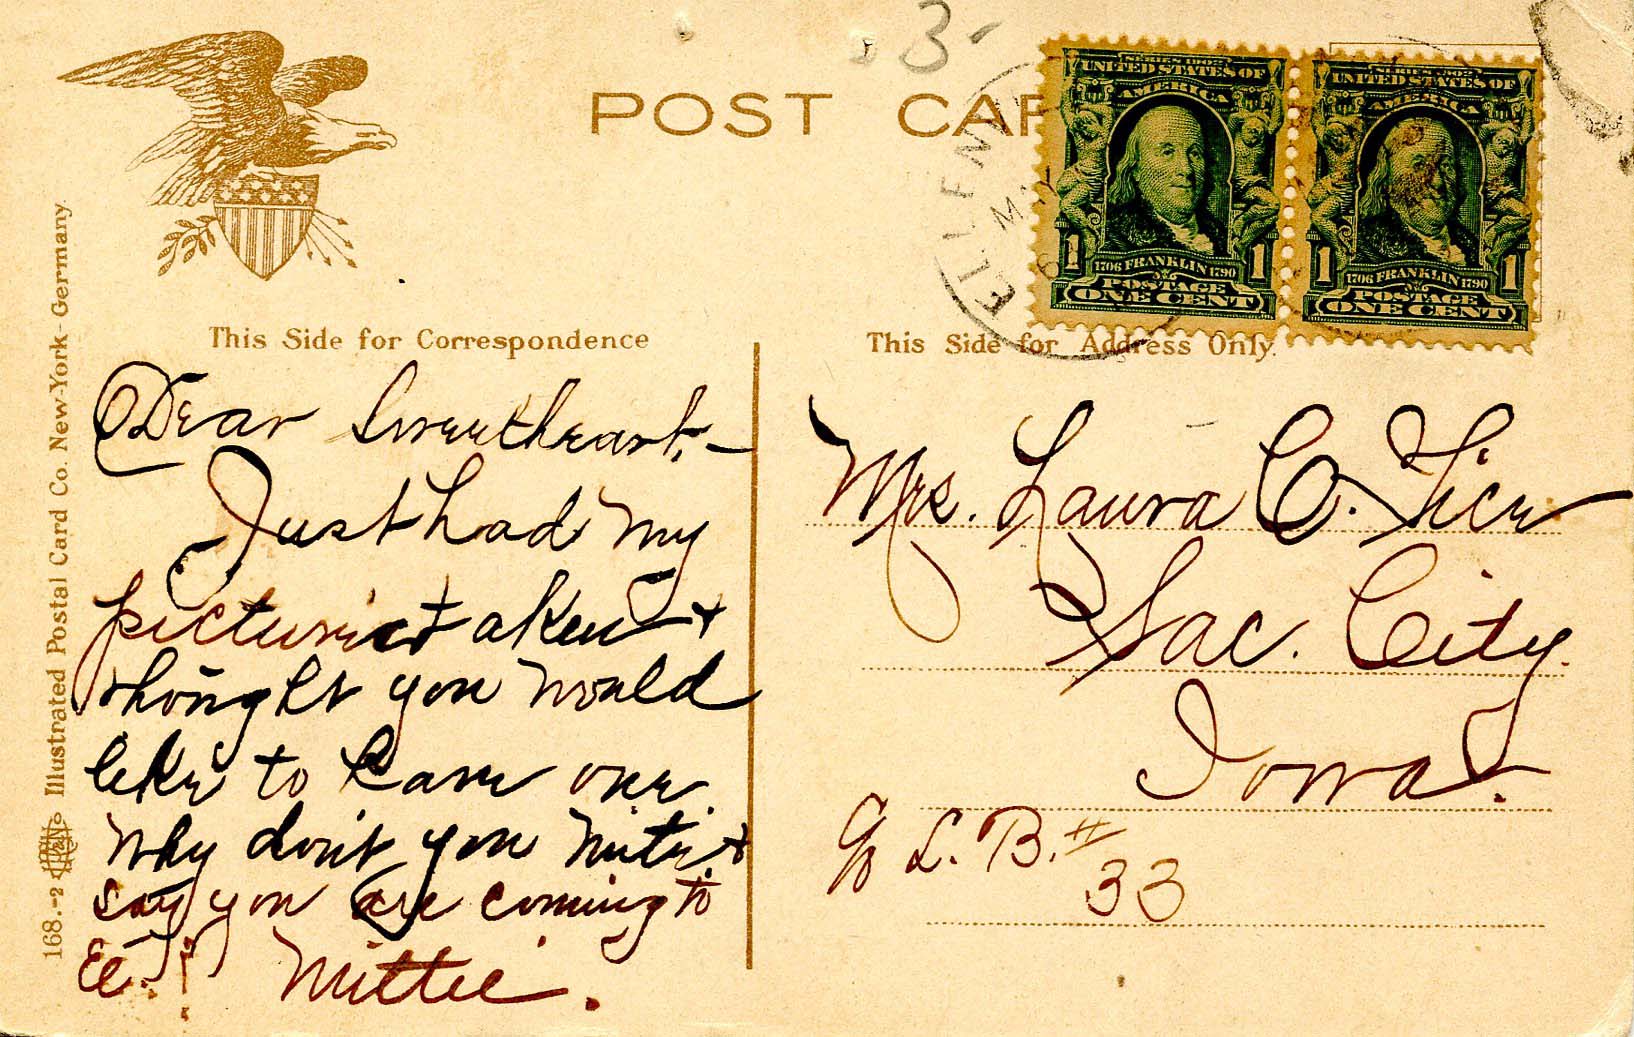 3-
POST CAR
UNITED STATES OF
AMERICA
1706 FRANKLIN 1790
1 1
POSTAGE
ONE CENT
SERIES 1902
UNITED STATES OF
AMERICA
1706 FRANKLIN 1790
1 1
POSTAGE
ONE CENT
ELLEN
This Side for Correspondence
Dear Sweetheart,-
Just had my
pictures taken +
thought you would
like to have one.
Why don't you write +
say you are coming to
Ee.! Mittie.
This Side for Address Only.
Mrs. Laura C. Tice
Sac. City.
Iowa.
c/o L. B. #
33
168.-2 Illustrated Postal Card Co. New-York - Germany.